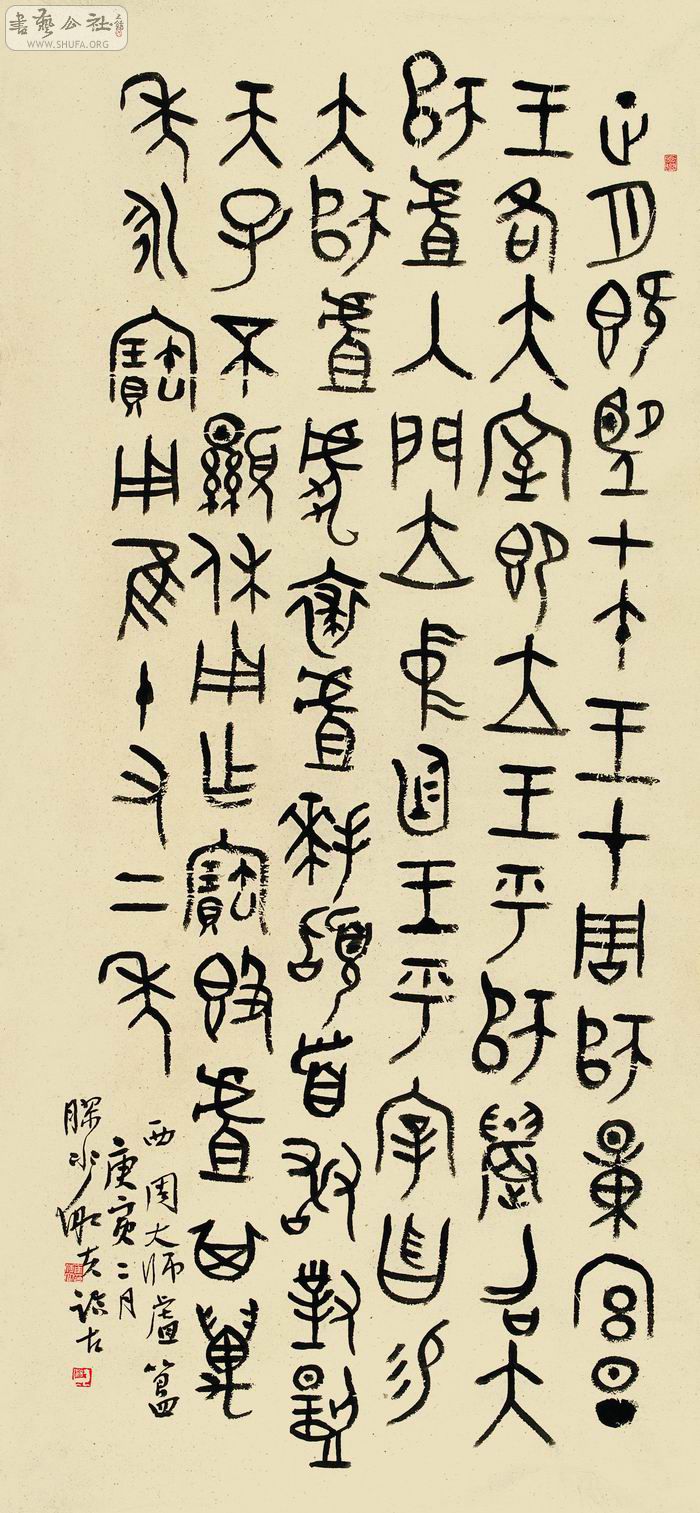 書藝公社
WWW.SHUFA.ORG
正月既望甲午王才周師量宮旦
王各大室即立王乎師晨召大
師虘入門立中廷王乎宰曶易
大師虘虎裘虘拜䭫首敢對揚
天子不顯休用乍寶𣪘虘其萬
年永寶用隹十又二年
西周大师虘簋
庚寅二月
臨古